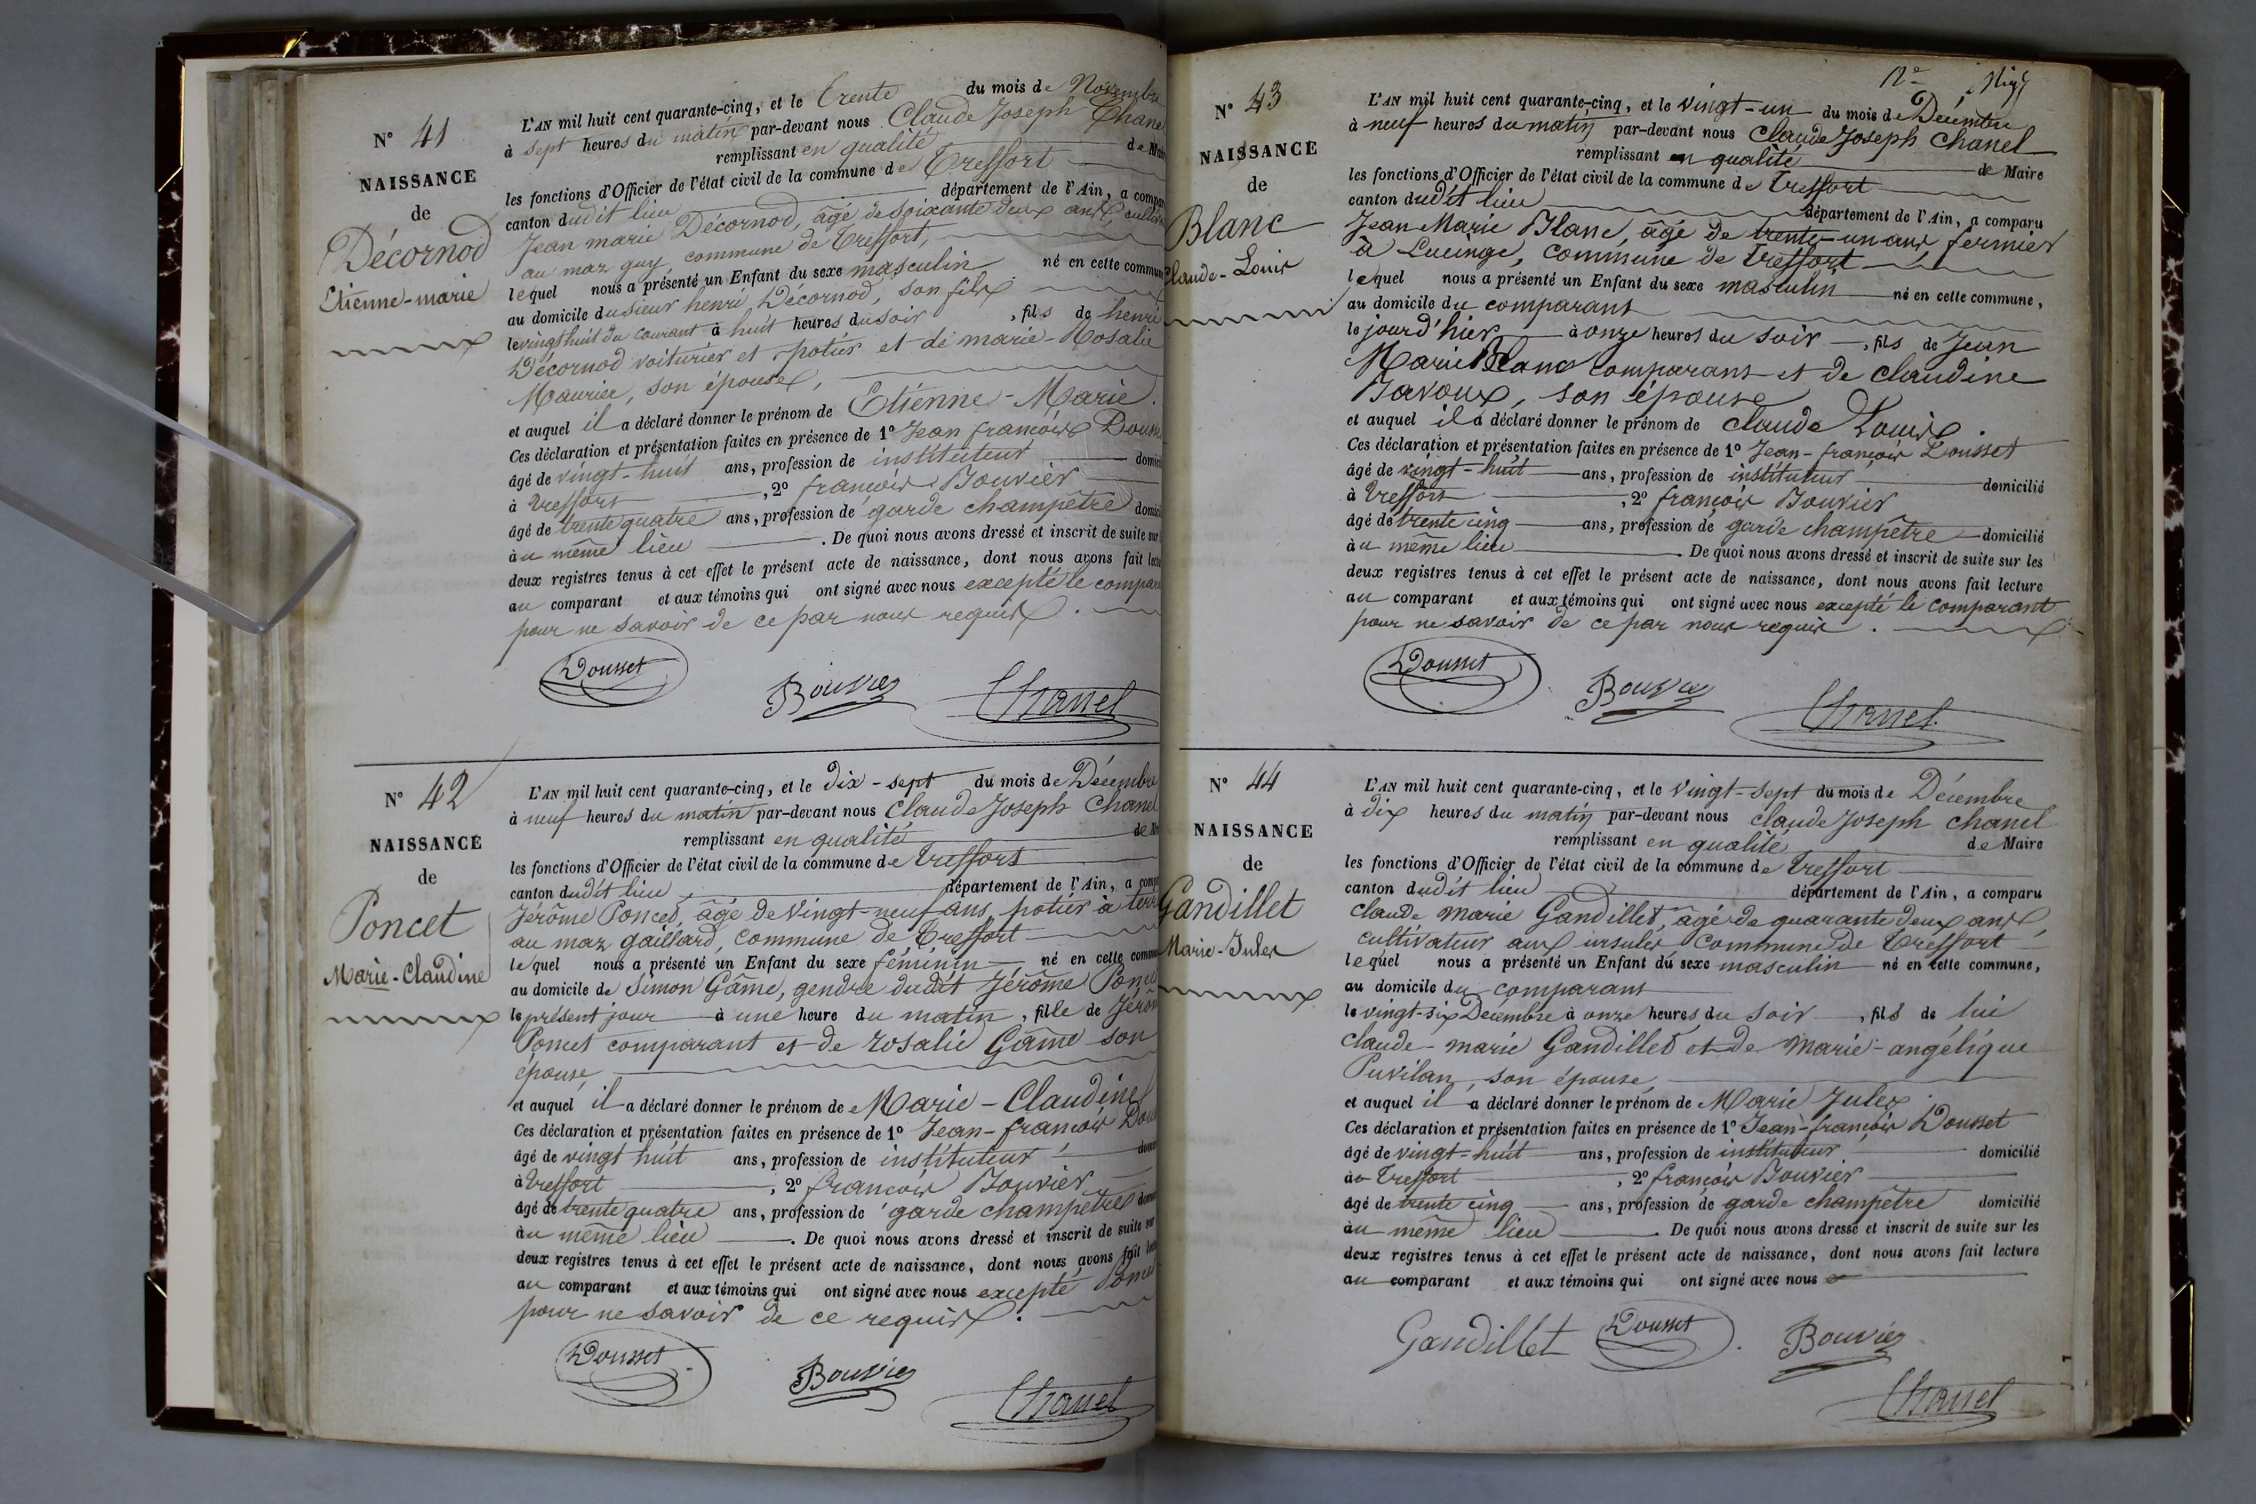 N° 41
NAISSANCE
de
Décornod
Etienne-marie
L'AN mil huit cent quarante-cinq, et le trente du mois de Novembre
à sept heures du matin par-devant nous Claude Joseph Chanel
remplissant en qualité de Maire
les fonctions d'Officier de l'état civil de la commune de Treffort
canton dudit lieu département de l'Ain, a comparu
Jean marie Décornod, âgé de soixante deux ans, cultiv
au maz guy commune de Treffort,
lequel nous a présenté un Enfant du sexe masculin né en cette commun
au domicile du sieur henri Décornod, son fils
le vingt huit du courant à huit heures du soir, fils de henri
Décornod voiturier et potier et de marie-Rosalie
Maurice, son épouse,
et auquel il a déclaré donner le prénom de Etienne-Marie.
Ces déclaration et présentation faites en présence de 1° Jean françois Douss
âgé de vingt-huit ans, profession de instituteur domici
à Treffort, 2° françois Bouvier
âgé de trente quatre ans, profession de garde champêtre domici
àu même lieu. De quoi nous avons dressé et inscrit de suite sur
deux registres tenus à cet effet le présent acte de naissance, dont nous avons fait lectu
au comparant et aux témoins qui ont signé avec nous excepté le compara
pour ne savoir de ce par nous requis.
Dousset
Bouvier
Chanel
N° 42
NAISSANCE
de
Poncet
Marie-Claudine
L'AN mil huit cent quarante-cinq, et le dix-sept du mois de Décembre
à neuf heures du matin par-devant nous Claude Joseph Chanel
remplissant en qualité de M
les fonctions d'Officier de l'état civil de la commune de Treffort
canton dudit lieu, département de l'Ain, a comp
Jérôme Poncet, âgé de vingt-neuf ans, potier à terr
au maz gaillard, commune de Treffort
lequel nous a présenté un Enfant du sexe féminin né en cette commu
au domicile de Simon Gâme, gendre dudit Jérôme Ponce
le présent jour à une heure du matin, fille de Jérôm
Poncet comparant et de rosalie Gâme son
épouse,
et auquel il a déclaré donner le prénom de Marie-Claudine
Ces déclaration et présentation faites en présence de 1° Jean-françois Dou
âgé de vingt huit ans, profession de instituteur domi
à Treffort, 2° françois Bouvier
âgé de trente quatre ans, profession de garde champêtre domi
àu même lieu. De quoi nous avons dressé et inscrit de suite sur
deux registres tenus à cet effet le présent acte de naissance, dont nous avons fait lect
au comparant et aux témoins qui ont signé avec nous excepté Poncet
pour ne savoir de ce requis.
Dousset
Bouvier
Chanel
N° 43
NAISSANCE
de
Blanc
laude-Louis
L'AN mil huit cent quarante-cinq, et le vingt-un du mois de Décembre
à neuf heures du matin par-devant nous Claude Joseph Chanel
remplissant en qualité de Maire
les fonctions d'Officier de l'état civil de la commune de Treffort
canton dudit lieu département de l'Ain, a comparu
Jean Marie Blanc, âgé de trente-un ans, fermier
à Lucinge, commune de Treffort
lequel nous a présenté un Enfant du sexe masculin né en cette commune,
au domicile du comparant
le jourd'hier à onze heures du soir, fils de Jean
Marie Blanc comparant et de claudine
Javoux, son épouse
et auquel il a déclaré donner le prénom de claude Louis.
Ces déclaration et présentation faites en présence de 1° Jean-françois Dousset
âgé de vingt-huit ans, profession de instituteur domicilié
à Treffort, 2° françois Bouvier
âgé de trente cinq ans, profession de garde champêtre domicilié
àu même lieu. De quoi nous avons dressé et inscrit de suite sur les
deux registres tenus à cet effet le présent acte de naissance, dont nous avons fait lecture
au comparant et aux témoins qui ont signé avec nous excepté le comparant
pour ne savoir de ce par nous requis.
Dousset
Bouvier
Chanel
N° 44
NAISSANCE
de
Gandillet
Marie-Jules
L'AN mil huit cent quarante-cinq, et le vingt-sept du mois de Décembre
à dix heures du matin par-devant nous claude Joseph chanel
remplissant en qualité de Maire
les fonctions d'Officier de l'état civil de la commune de Treffort
canton dudit lieu département de l'Ain, a comparu
claude marie Gandillet, âgé de quarante deux ans,
cultivateur aux ursules commune de Treffort
lequel nous a présenté un Enfant du sexe masculin né en cette commune,
au domicile du comparant
le vingt-six Décembre à onze heures du soir, fils de lui
claude-marie Gandillet et de marie-angélique
Puvilan, son épouse,
et auquel il a déclaré donner le prénom de Marie Jules.
Ces déclaration et présentation faites en présence de 1° Jean-françois Dousset
âgé de vingt-huit ans, profession de instituteur domicilié
à Treffort, 2° françois Bouvier
âgé de trente cinq ans, profession de garde champêtre domicilié
àu même lieu. De quoi nous avons dressé et inscrit de suite sur les
deux registres tenus à cet effet le présent acte de naissance, dont nous avons fait lecture
au comparant et aux témoins qui ont signé avec nous
Gandillet
Dousset
Bouvier
Chanel